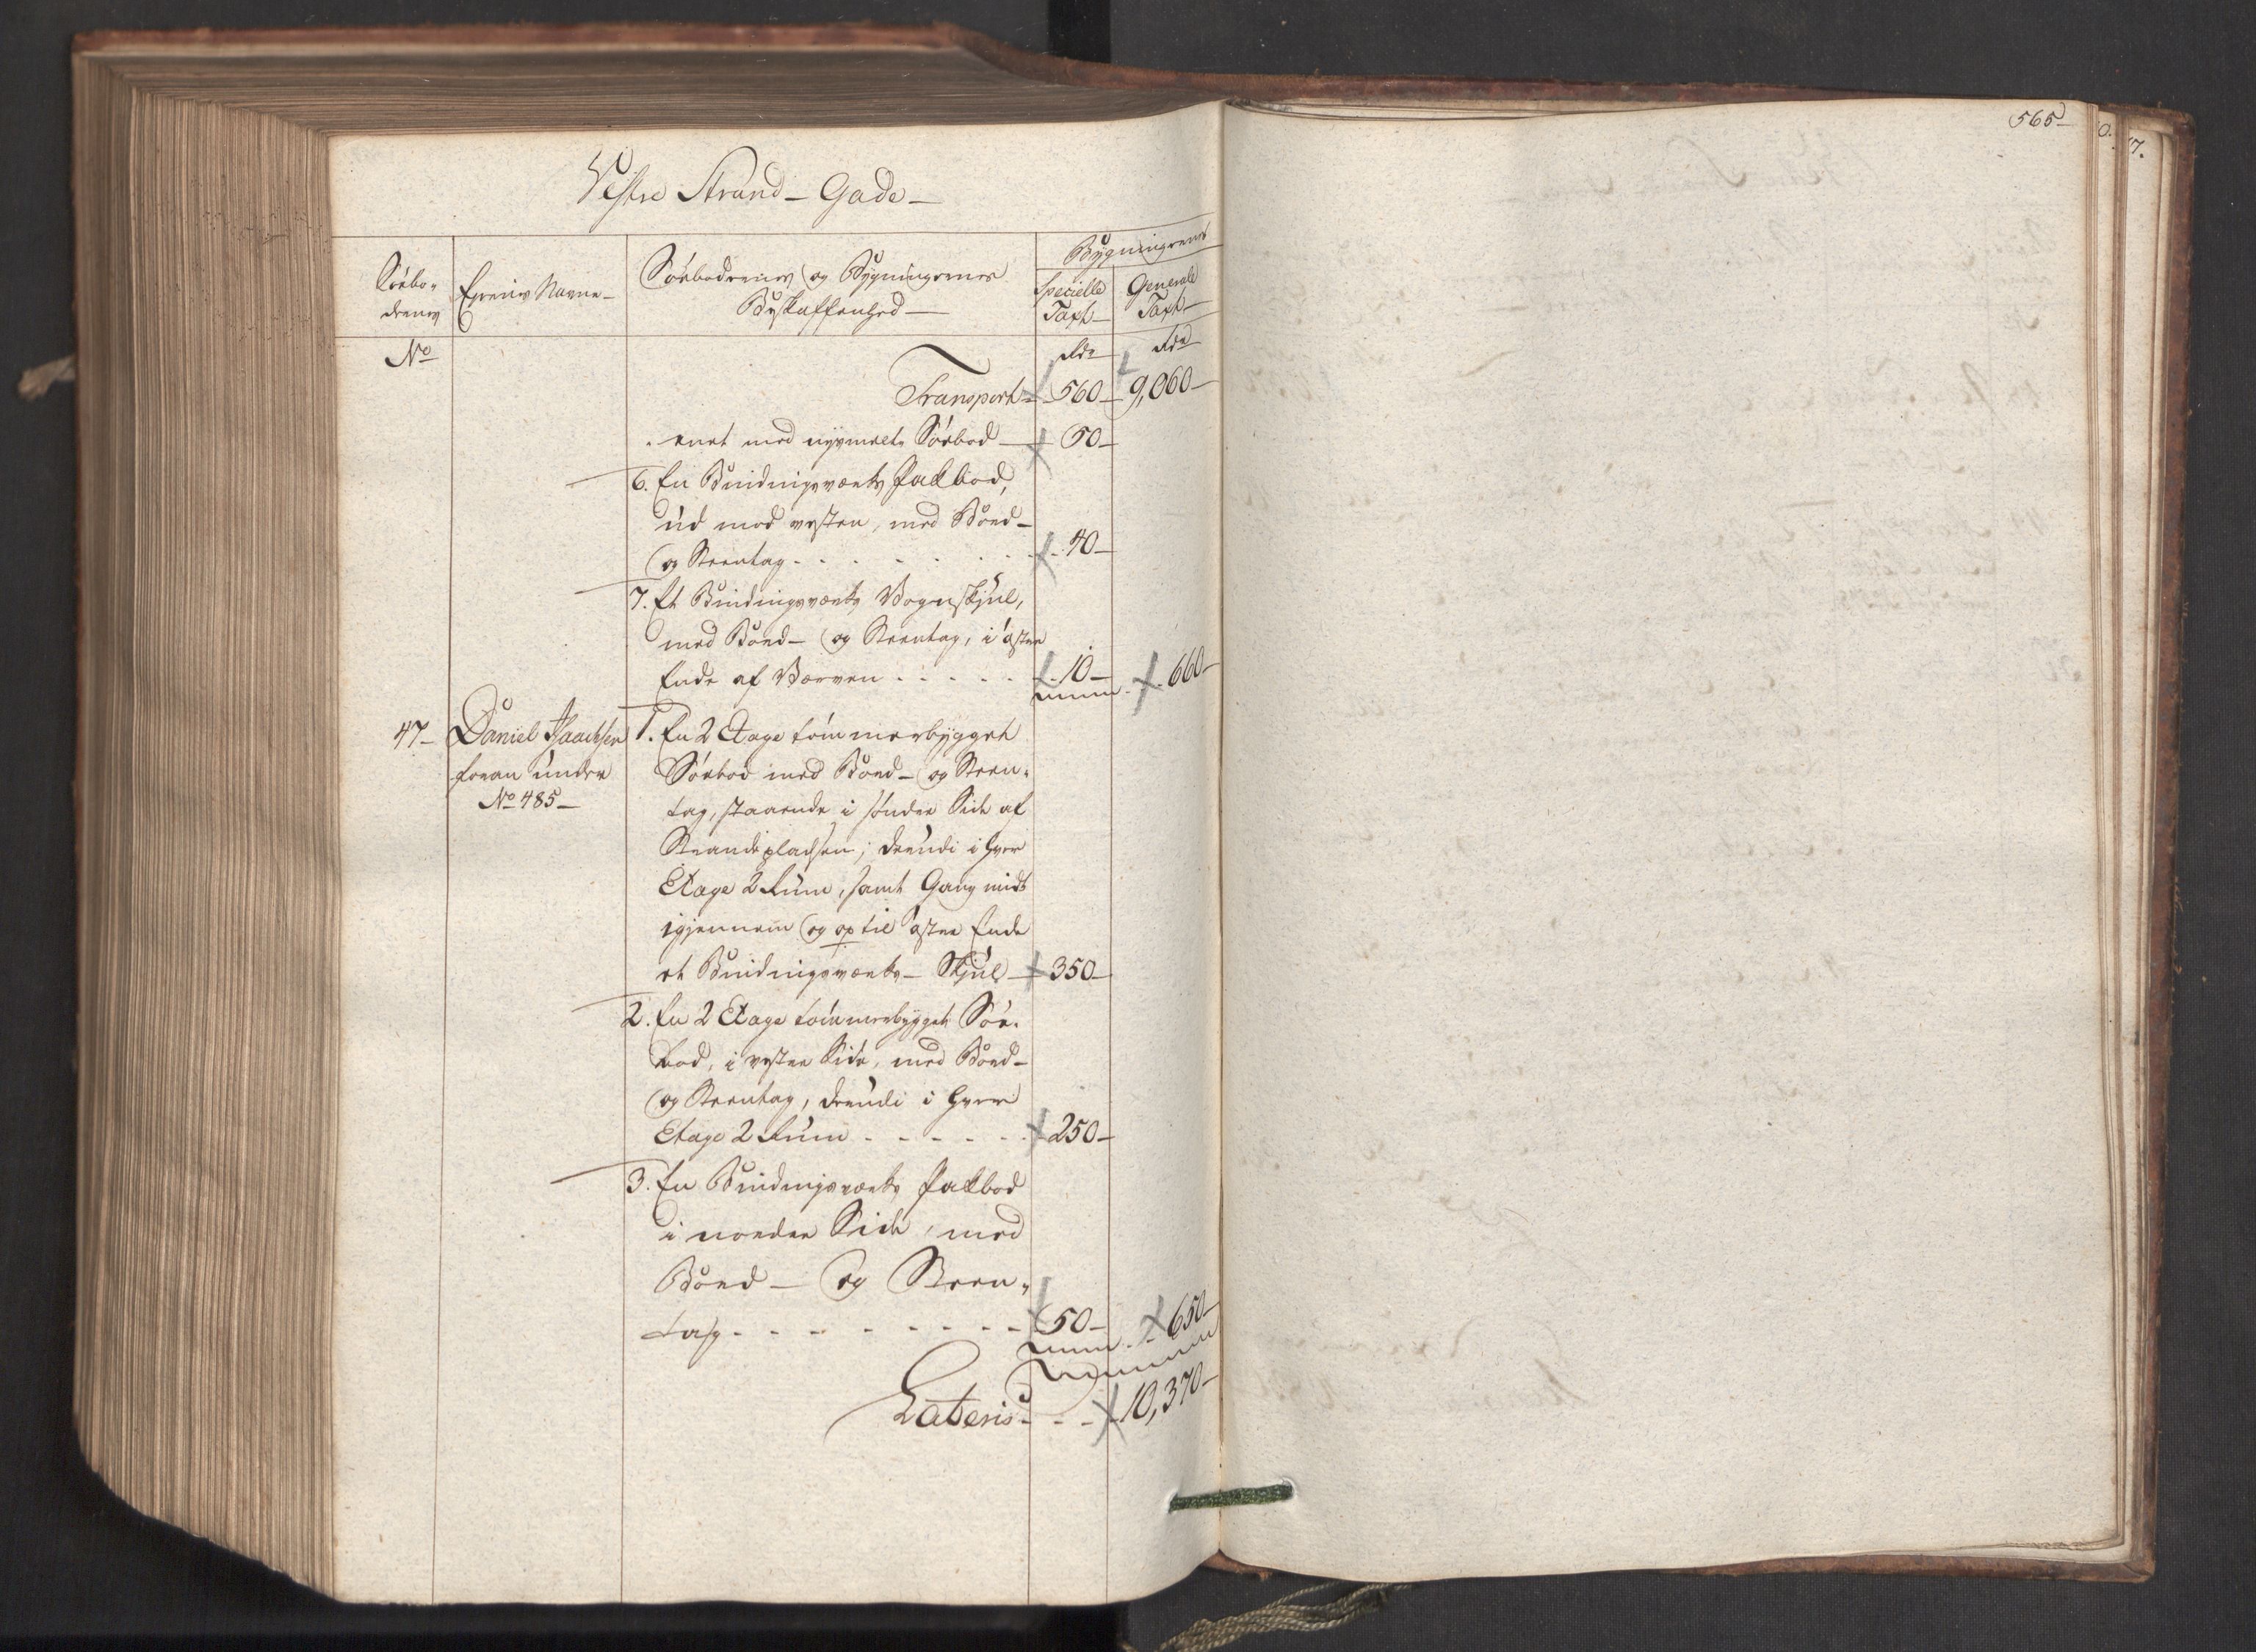 Vestre Strand - Gade -
Söebo-
dens
Eyerens Navne -
Söebodens og Bygningernes
Beskaffenhed -
Bygningens
Specielle
Taxt -
Generale
Taxt -
No
Rdr
Rdr
Transport - 560 - 9,060 -
med Söebod - 50 -
6. En Bindingsværks Pakbod,
ud mod vesten, med Bord -
og Steentag - 40 -
7. Et Bindingsværks Vognskjul,
med Bord - og Steentag, i öster
Ende af Værven - 10 - 660 -
47 - Daniel Isaachsen 1. En 2 Etage tömmerbygget
foran under Söebod med Bord - og Steen-
No 485 - tag, staaende i sönder Side af
Strandepladsen, derudi i hver
Etage 2 Rum, samt Gang midt
igjennem og op til öster Ende
et Bindingsværks - Skjul - 350 -
2. En 2 Etage tömmerbygget Söe-
bod, i vester Side, med Bord -
og Steentag, derudi i hver
Etage 2 Rum - 250 -
3. En Bindingsværks Pakbod
i norder Side, med
Bord - og Steen-
tag - 50 - 650 -
Lateris - 10,370 -
565 -